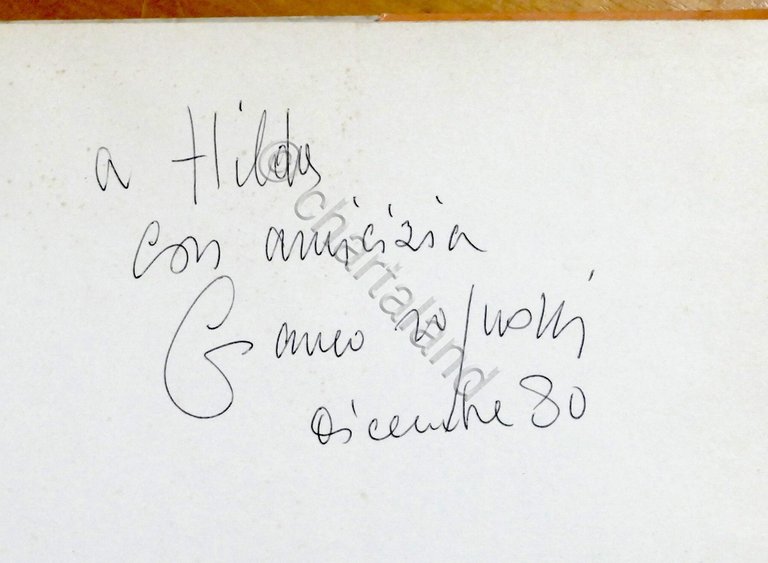 a Hilda
con amicizia
Franco rognoni
dicembre 80
© chartaland